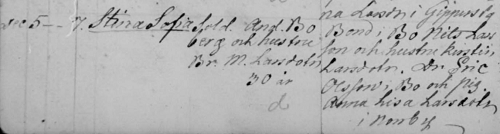 5 — 7. Stina Sofia Sold. And. Bo
berg och hustru
Br. M. Larsdotr
30 år
d
na Larson i
Bond. i Bo Nils Lar
son och hustru Kerstin
Larsdotr. Dr. Eric
Olsson i Bo och pig.
Anna Lisa Larsdotr
i Norrby